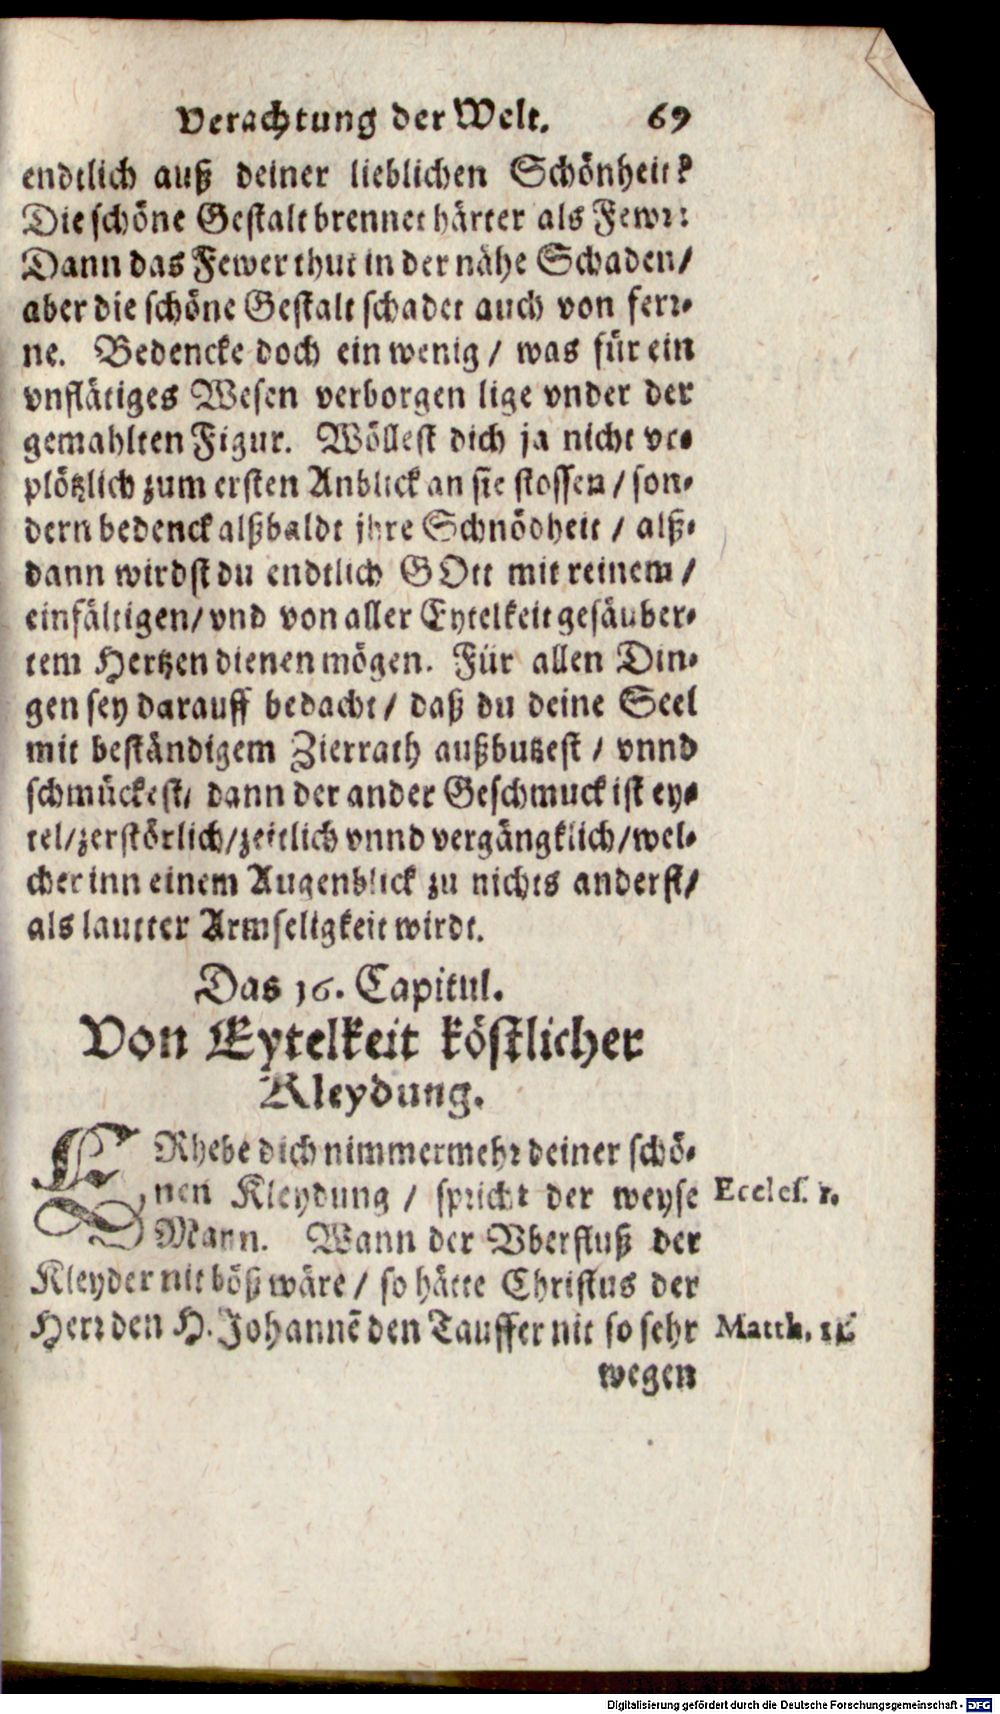 Verachtung der Welt. 69
endtlich auß deiner lieblichen Schönheit?
Die schöne Gestalt brennet härter als Fewr:
Dann das Fewer thut in der nähe Schaden/
aber die schöne Gestalt schadet auch von ferr-
ne. Bedencke doch ein wenig / was für ein
vnflätiges Wesen verborgen lige vnder der
gemahlten Figur. Wöllest dich ja nicht vr-
plötzlich zum ersten Anblick an sie stossen / son-
dern bedenck alßbaldt jhre Schnödheit / alß-
dann wirdst du endtlich GOtt mit reinem /
einfältigen/ vnd von aller Eytelkeit gesäuber-
tem Hertzen dienen mögen. Für allen Din-
gen sey darauff bedacht / daß du deine Seel
mit beständigem Zierrath außbutzest / vnnd
schmückest/ dann der ander Geschmuck ist ey-
tel/zerstörlich/zeitlich vnnd vergängklich/wel-
cher inn einem Augenblick zu nichts anderst/
als lautter Armseligkeit wirdt.
Das 16. Capitul.
Von Eytelkeit köstlicher
Kleydung.
ERhebe dich nimmermehr deiner schö-
nen Kleydung / spricht der weyse Eccles. 1.
Mann. Wann der Vberfluß der
Kleyder nit böß wäre / so hätte Christus der
Herr den H. Johannē den Tauffer nit so sehr Matth. 11.
wegen
Digitalisierung gefördert durch die Deutsche Forschungsgemeinschaft - DFG